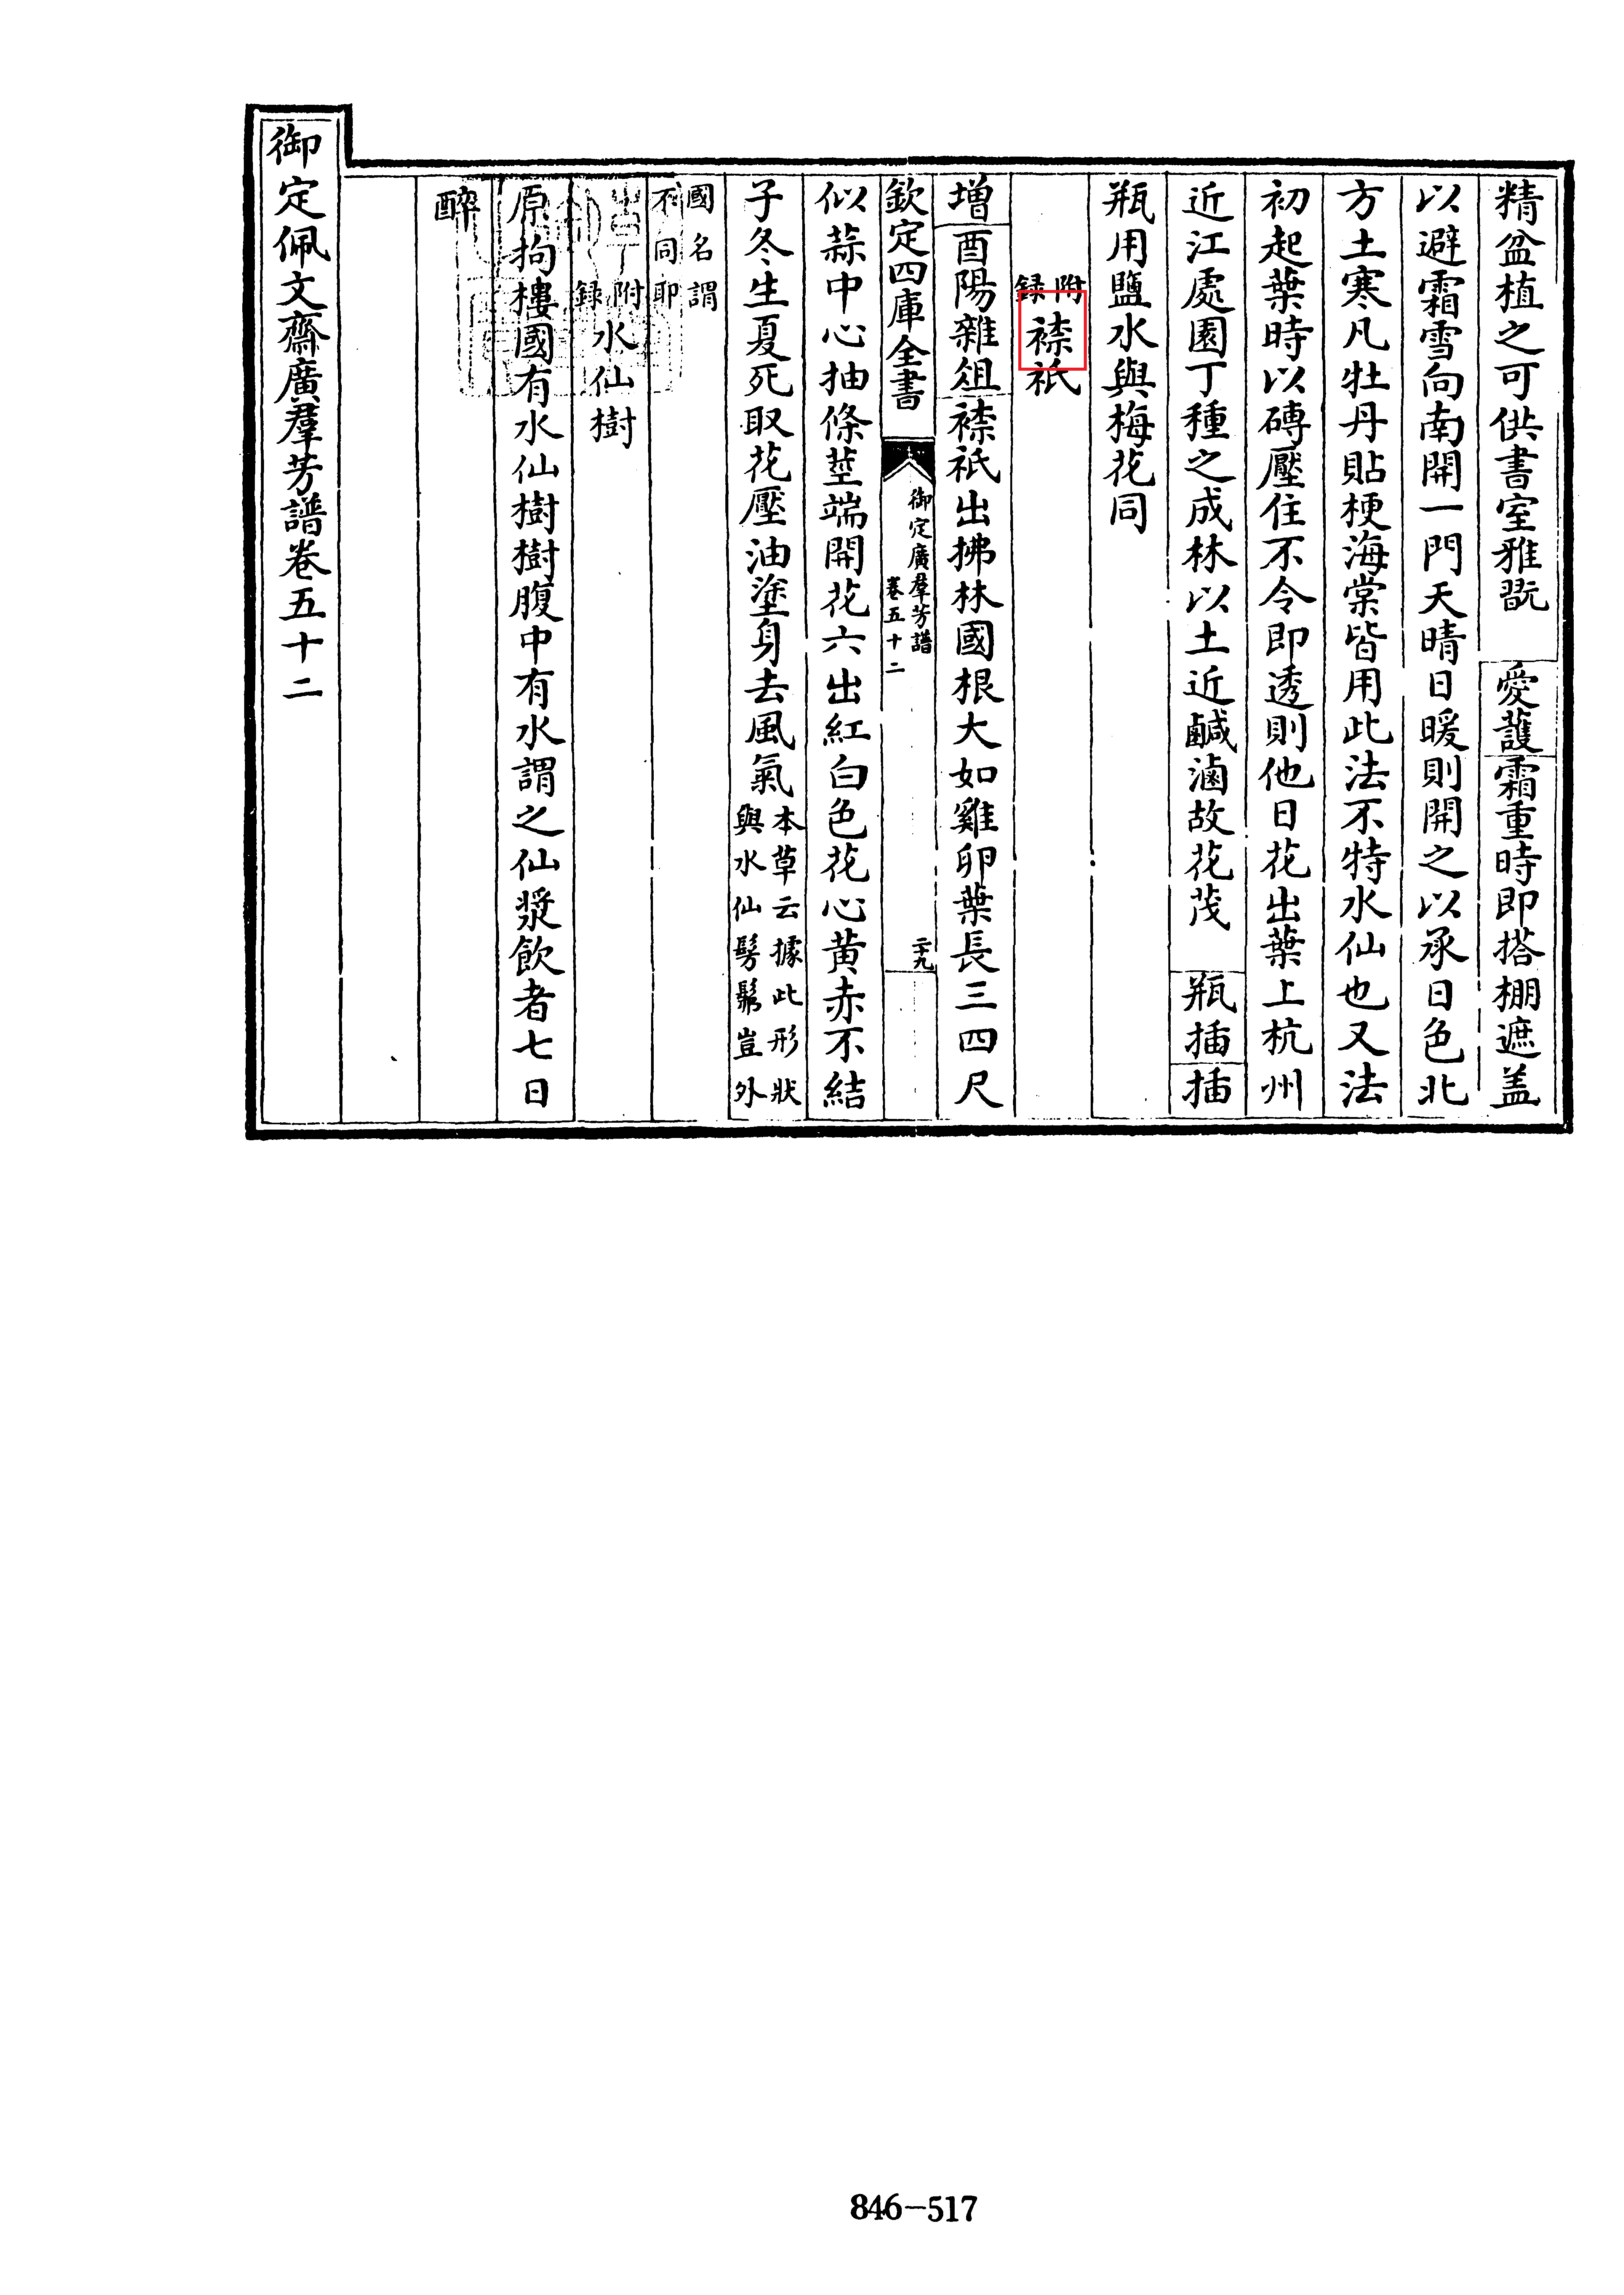 精盆植之可供書室雅翫 愛護霜重時即搭棚遮盖
以避霜雪向南開一門天晴日暖則開之以承日色北
方土寒凡牡丹貼梗海棠皆用此法不特水仙也又法
初起葉時以磚壓住不令即透則他日花出葉上杭州
近江處園丁種之成林以土近鹹滷故花茂 瓶插插
瓶用鹽水與梅花同
附録 祇
增酉陽雜俎 祇出拂林國根大如雞卵葉長三四尺
欽定四庫全書
御定廣羣芳譜
卷五十二
二十九
似蒜中心抽條莖端開花六出紅白色花心黄赤不結
子冬生夏死取花壓油塗身去風氣本草云據此形狀
與水仙髣髴豈外
國名謂
不同耶
附録水仙樹
原拘樓國有水仙樹樹腹中有水謂之仙漿飲者七日
醉
御定佩文齋廣羣芳譜卷五十二
846-517